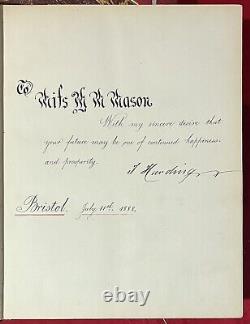 To Miss M M Mason.
With my sincere desire that
your future may be one of continued happiness
and prosperity.
J Harding
Bristol. July 1882.
© tharnby1